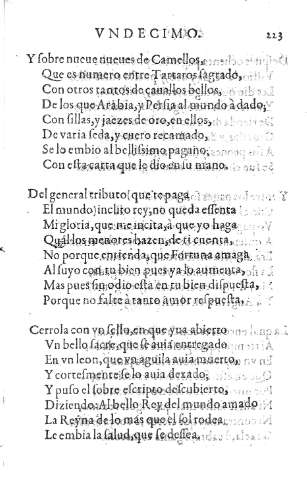 VNDECIMO. 223
Y sobre nueue nueues de Camellos,
Que es numero entre Tartaros sagrado,
Con otros tantos de cauallos bellos,
De los que Arabia, y Persia al mundo à dado,
Con sillas, y jaezes de oro, en ellos,
De varia seda, y cuero recamado,
Se lo embio al bellissimo pagano,
Con esta carta que le dio en su mano.
Del general tributo (que te paga
El mundo) inclito rey, no queda essenta
Mi gloria, que me incita, à que yo haga
Qual los menores hazen, de ti cuenta,
No porque entienda, que Fortuna amaga
Al suyo con tu bien pues ya lo aumenta,
Mas pues su odio esta en tu bien dispuesta,
Porque no falte à tanto amor respuesta,
Cerrola con vn sello, en que yua abierto
Vn bello sacre, que se auia entregado
En vn leon, que vn aguila auia muerto,
Y cortesmente se lo auia dexado;
Y puso el sobre escripto descubierto,
Diziendo: Al bello Rey del mundo amado
La Reyna de lo mas que el sol rodea,
Le embia la salud, que se dessea.